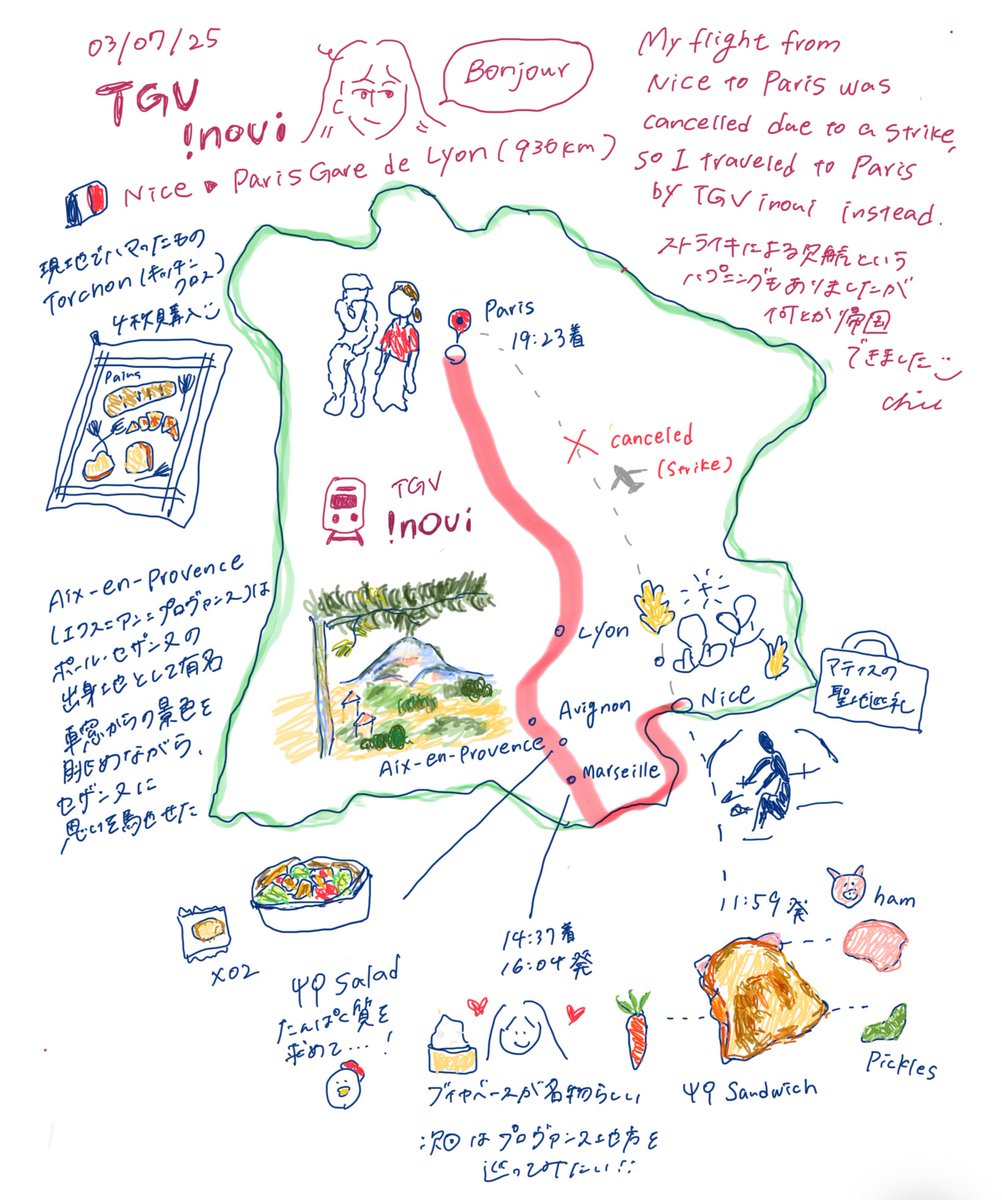 03/07/25
TGV
!noui
Bonjour
Nice ▸ Paris Gare de Lyon (930km)
My flight from
Nice to Paris was
cancelled due to a strike,
so I traveled to Paris
by TGV inoui instead.
ストライキによる欠航という
ハプニングもありましたが
何とか帰国
できました
chie
現地でハマったもの
Torchon (キッチン
クロス)
4枚購入
Pains
Paris
19:23着
canceled
(Strike)
TGV
!noui
Aix-en-Provence
(エクス=アン=プロヴァンス)は
ポール・セザンヌの
出身地として有名
車窓からの景色を
眺めながら、
セザンヌに
思いを馳せた
Lyon
Avignon
Aix-en-Provence
Marseille
キー
Nice
マティスの
聖地巡礼
11:59発
14:37着
16:04発
x02
Salad
たんぱく質を
求めて…!
ham
Pickles
Sandwich
ブイヤベースが名物らしい
次回はプロヴァンス地方を
巡ってみたい!!